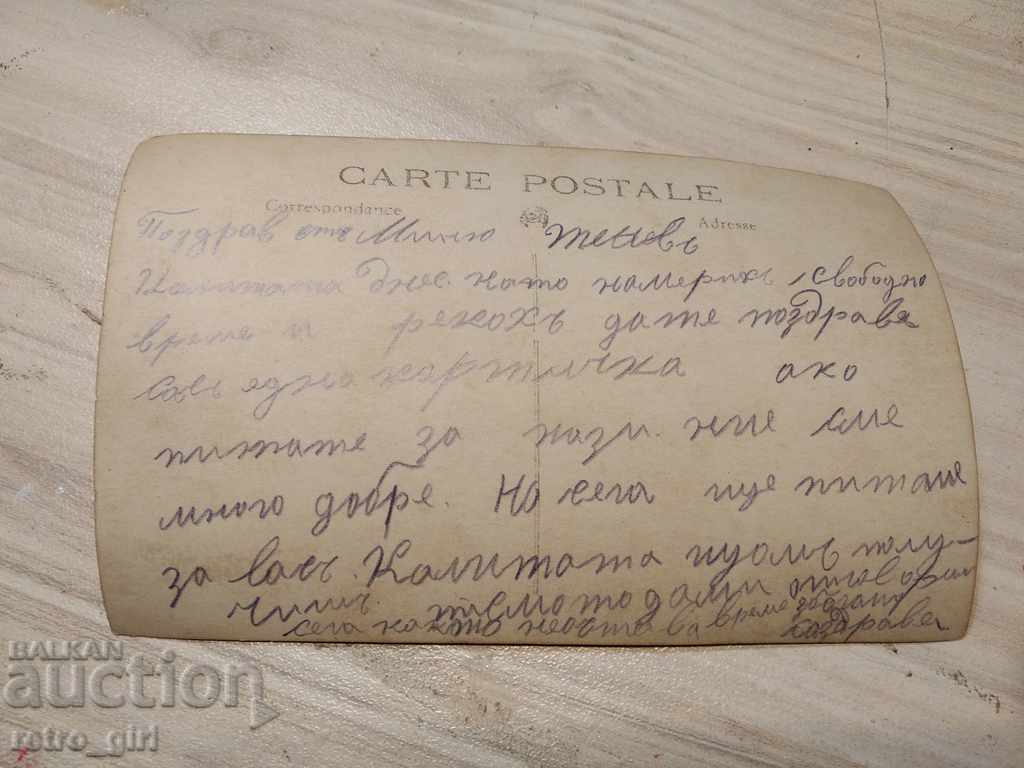 CARTE POSTALE
Correspondance
Adresse
Поздрав отъ Миню Теневъ
Калитата Днес като намерихъ свободно
време и рекохъ даже поздравя
съсъ една картичка ако
питате за нази. ние сме
много добре. Но сега ще питаме
за васъ. Калитата щомъ полу-
чишъ. писмото отговори
сега време
поздрави
BALKAN
auction
retro_girl